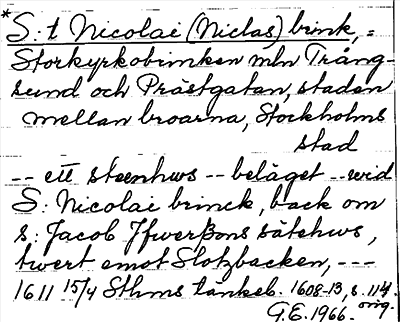 *S:t Nicolai (Niclas) brink, =
Storkyrkobrinken mln Trång-
sund och Prästgatan, staden
mellan broarna, Stockholms
stad
-- ett steenhws -- beläget -- wid
S: Nicolai brinck, back om
s: Jacob Ifwerßons sätehws,
twert emot Slotzbacken, ---
1611 15/4 Sthms tänkeb. 1608-13, s. 114.
orig.
G.E. 1966.